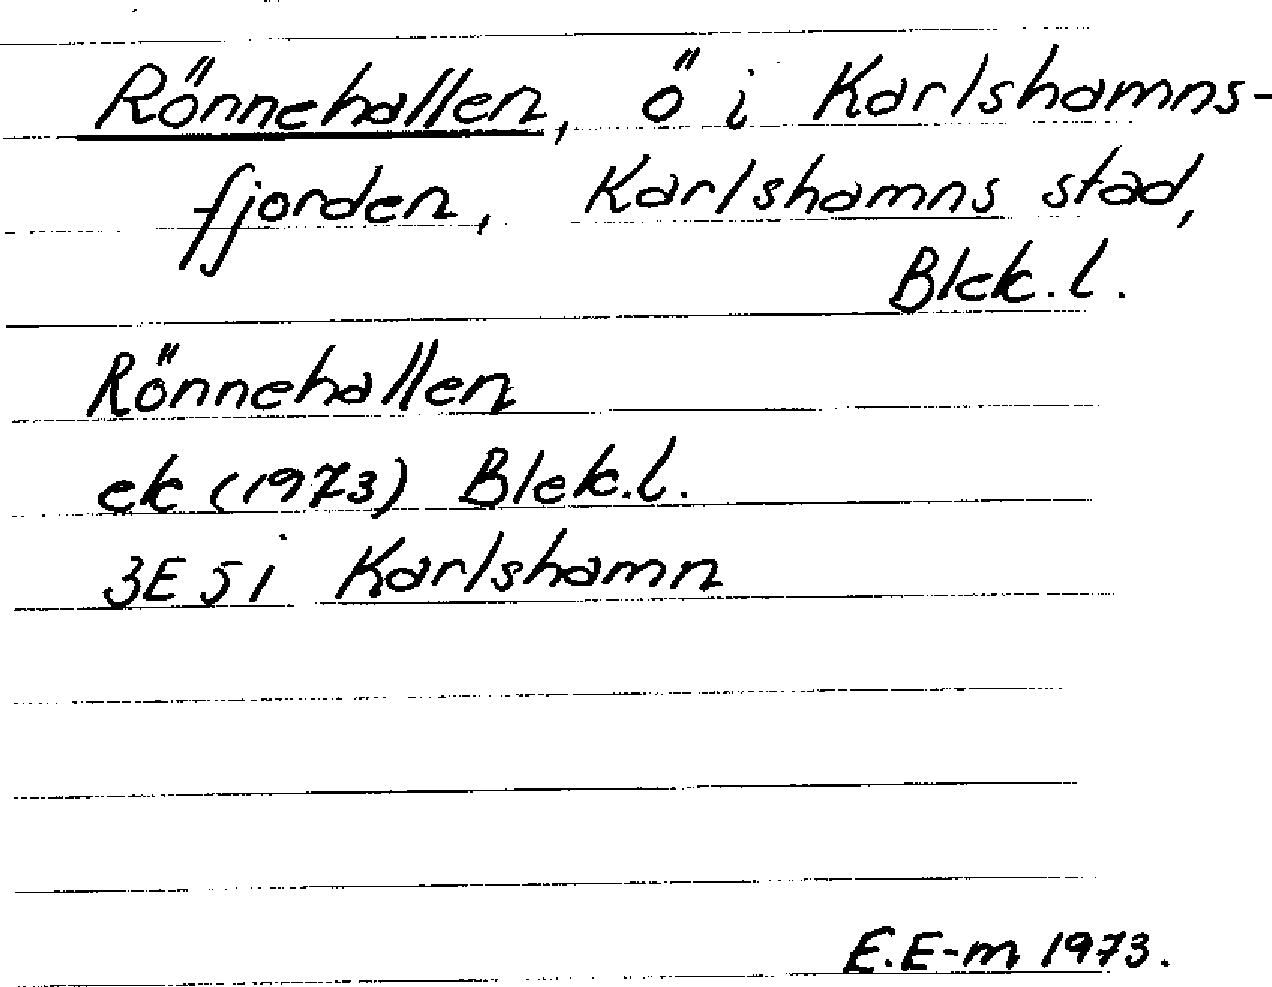 Rönnehallen, ö i Karlshamns-
fjorden, Karlshamns stad,
Blek.l.
Rönnehallen
ek (1973) Blek.l.
3E5i Karlshamn
E.E-m 1973.